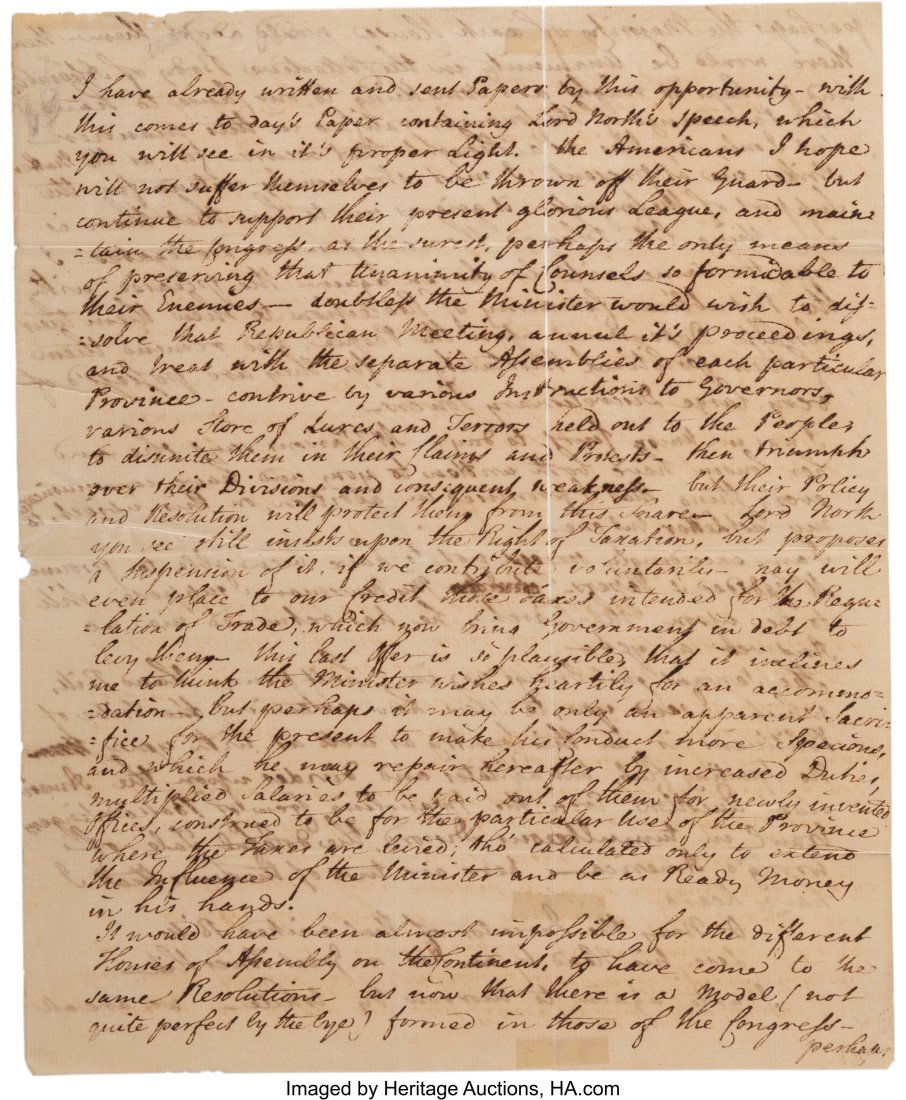 I have already written and sent Papers by this opportunity - with
this comes to day's Paper containing Lord North's speech, which
you will see in it's proper Light. the Americans I hope
will not suffer themselves to be thrown off their Guard - but
continue to support their present glorious League, and main=
=tain the Congress, as the surest, perhaps the only means
of preserving that Unanimity of Counsels so formidable to
their Enemies - doubtless the Minister would wish to dis=
=solve that Republican Meeting, annul it's proceedings,
and treat with the separate Assemblies of each particular
Province - contrive by various Instructions to Governors,
various Store of Lures and Terrors held out to the People,
to disunite them in their Claims and Protests - then triumph
over their Divisions and consequent weakness - but their Policy
and Resolution will protect them from this Snare - Lord North
you see still insists upon the Right of Taxation, but proposes
a suspension of it, if we contribute voluntarily - nay will
even place to our Credit those Taxes intended for the Regu=
=lation of Trade, which now bring Government in debt to
levy them - this last Offer is so plausible, that it inclines
me to think the Minister wishes heartily for an accommo=
=dation - but perhaps it may be only an apparent Sacri=
=fice for the present to make his Conduct more Specious,
and which he may repair hereafter by increased Duties,
multiplied Salaries to be paid out of them for newly invented
Offices, construed to be for the particular Use of the Province
where the Taxes are levied; tho' calculated only to extend
the Influence of the Minister and be as Ready Money
in his hands.
It would have been almost impossible for the different
Houses of Assembly on the Continent, to have come to the
same Resolutions - but now that there is a Model (not
quite perfect by the bye) formed in those of the Congress -
perhaps
Imaged by Heritage Auctions, HA.com